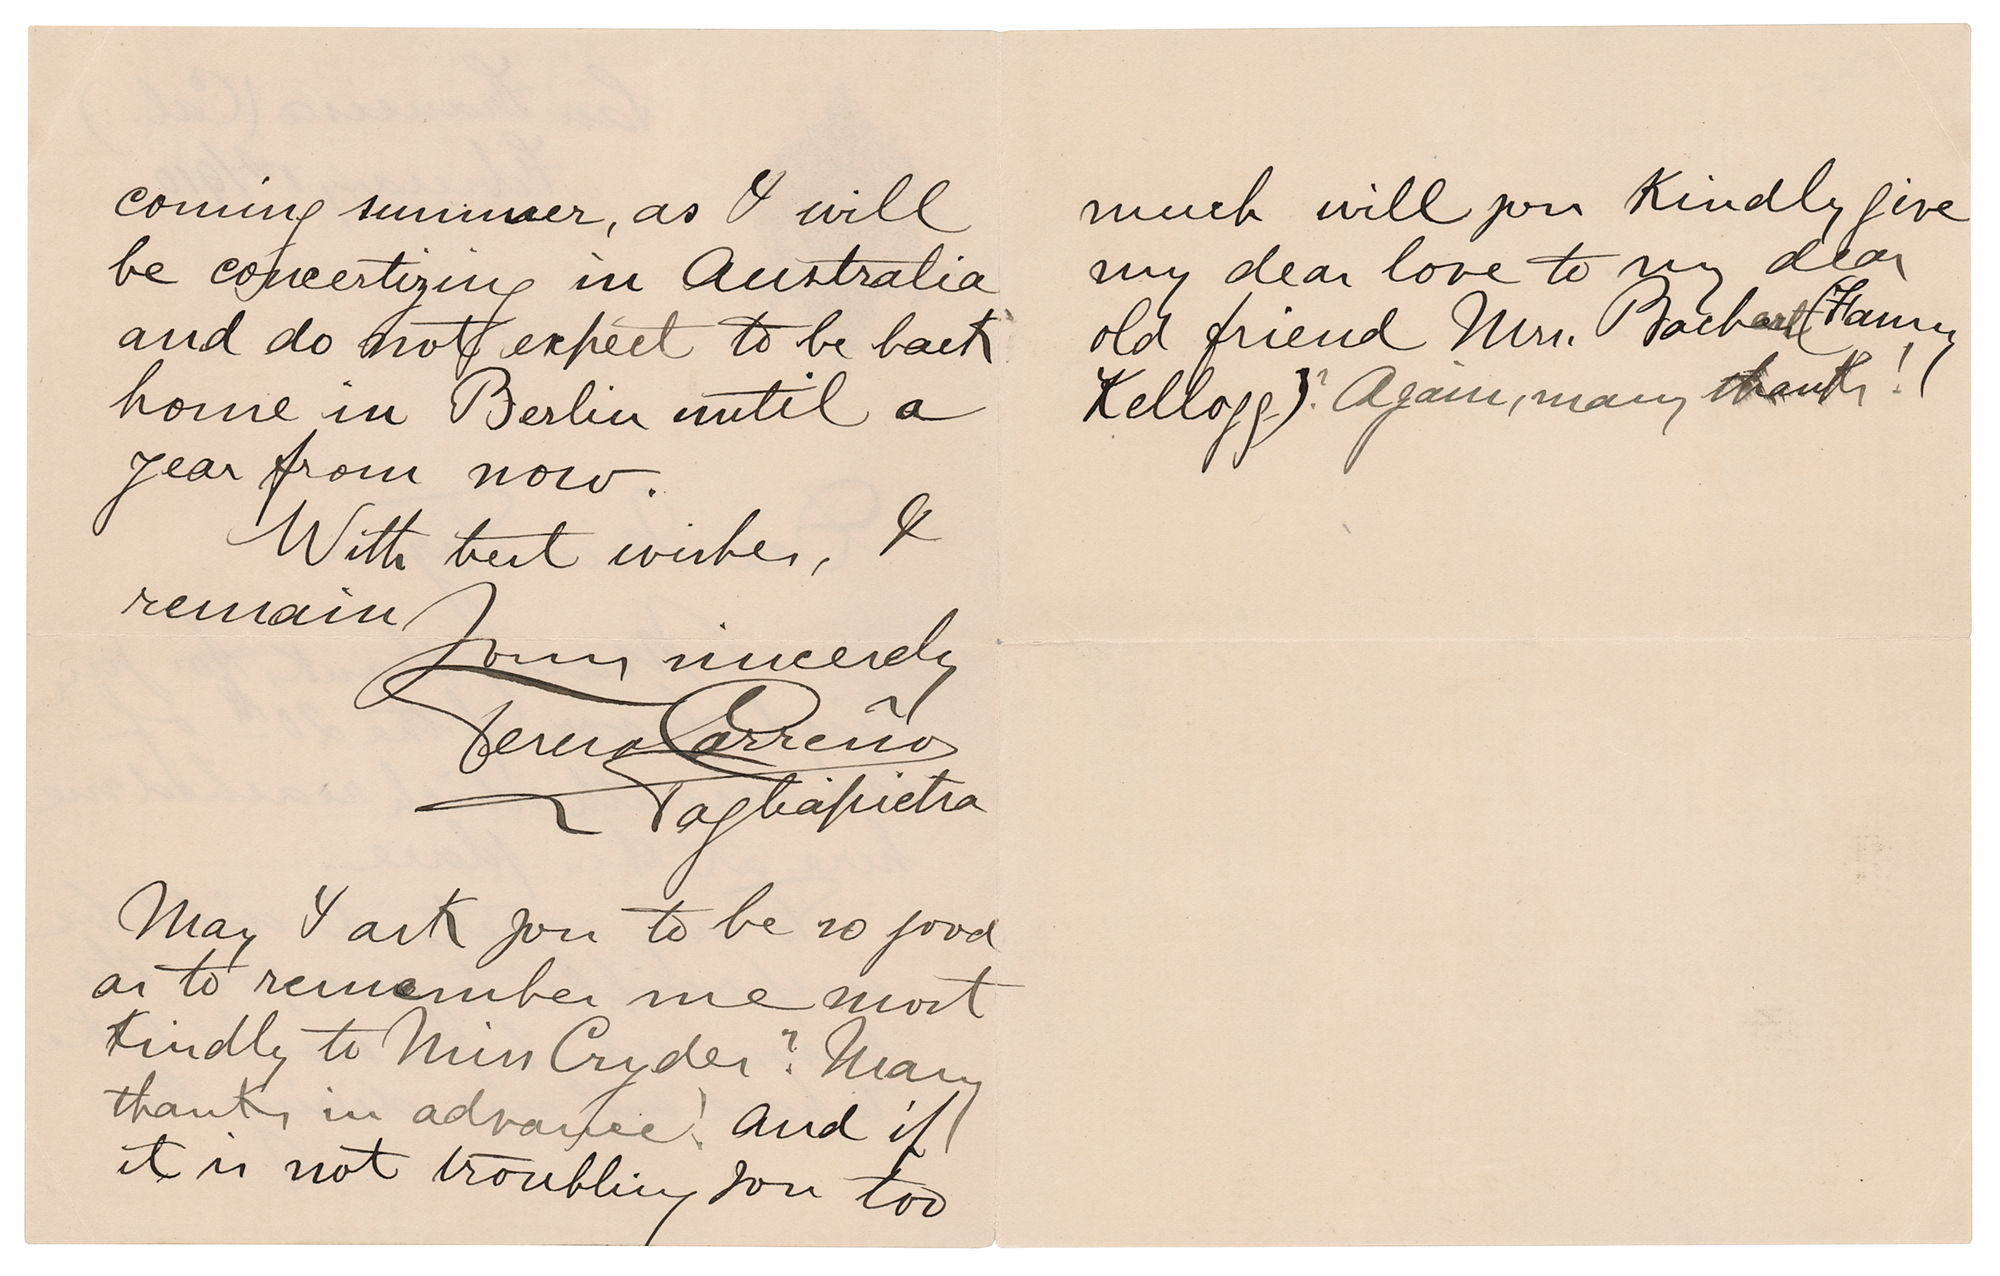 coming summer, as I will
be concertizing in Australia
and do not expect to be back
home in Berlin until a
year from now.
With best wishes, I
remain
Yours sincerely
Teresa Carreño
Tagliapietra
May I ask you to be so good
as to remember me most
kindly to Miss Cryder? Many
thanks in advance! And if
it is not troubling you too
much will you kindly give
my dear love to my dear
old friend Mrs. (Fanny
Kellogg)? Again, many thanks!